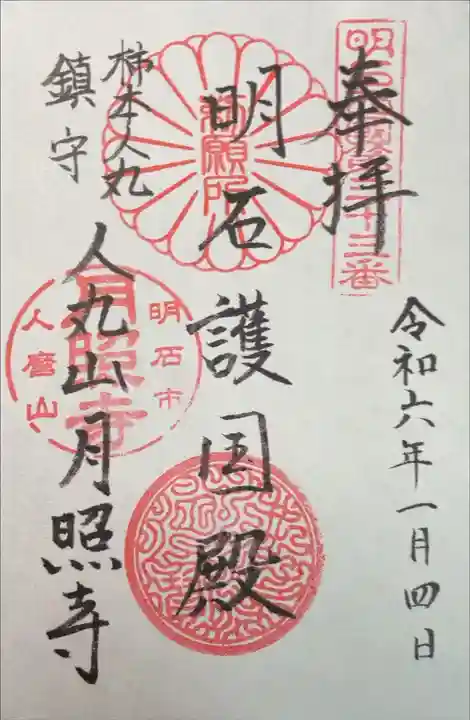 奉拝
令和六年一月四日
明石護国殿
柿本人丸
鎮守
人丸山月照寺
勅願所
月照寺
明石市
人麿山